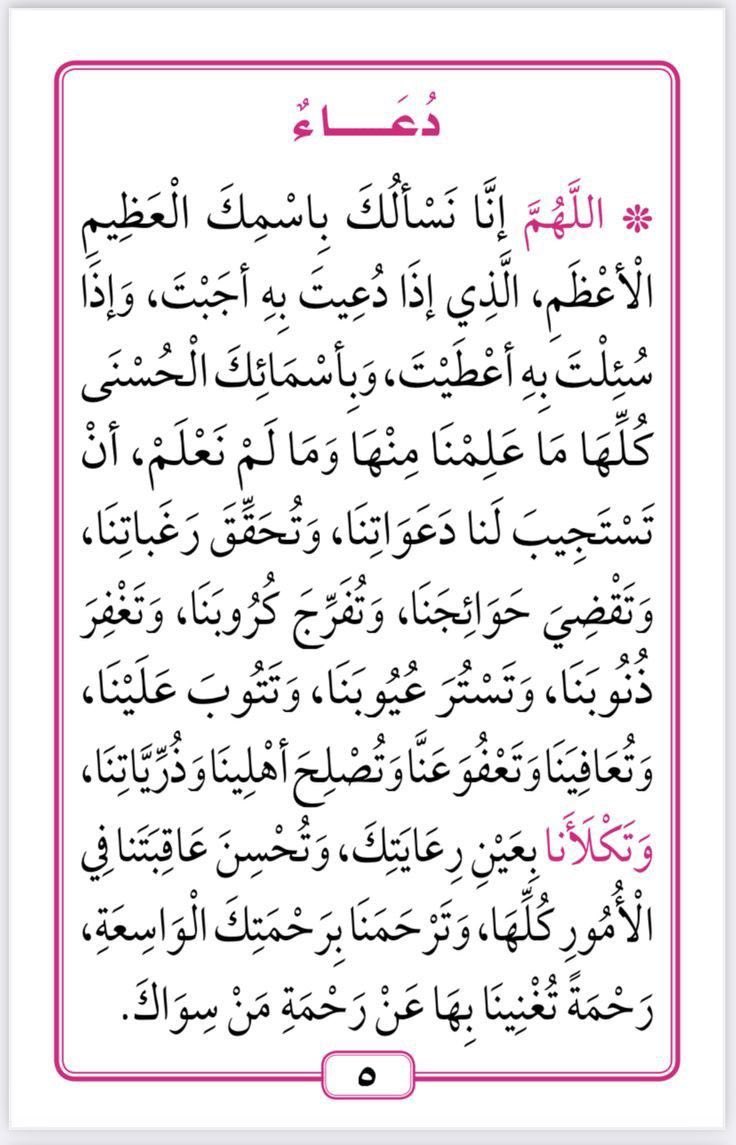 دُعَـــاءٌ
❊ اللَّهُمَّ إنَّا نَسْألُكَ بِاسْمِكَ الْعَظِيمِ
الْأعْظَمِ، الَّذِي إذَا دُعِيتَ بِهِ أجَبْتَ، وَإذَا
سُئِلْتَ بِهِ أعْطَيْتَ، وَبِأسْمَائِكَ الْحُسْنَى
كُلِّهَا مَا عَلِمْنَا مِنْهَا وَمَا لَمْ نَعْلَمْ، أنْ
تَسْتَجِيبَ لَنا دَعَوَاتِنَا، وَتُحَقِّقَ رَغَباتِنَا،
وَتَقْضِيَ حَوَائِجَنَا، وَتُفَرِّجَ كُرُوبَنَا، وَتَغْفِرَ
ذُنُوبَنَا، وَتَسْتُرَ عُيُوبَنَا، وَتَتُوبَ عَلَيْنَا،
وَتُعَافِيَنَا وَتَعْفُوَ عَنَّا وَتُصْلِحَ أهْلِينَا وَذُرِّيَّاتِنَا،
وَتَكْلَأَنا بِعَيْنِ رِعَايَتِكَ، وَتُحْسِنَ عَاقِبَتَنا فِي
الْأُمُورِ كُلِّهَا، وَتَرْحَمَنَا بِرَحْمَتِكَ الْوَاسِعَةِ،
رَحْمَةً تُغْنِينَا بِهَا عَنْ رَحْمَةِ مَنْ سِوَاكَ.
٥